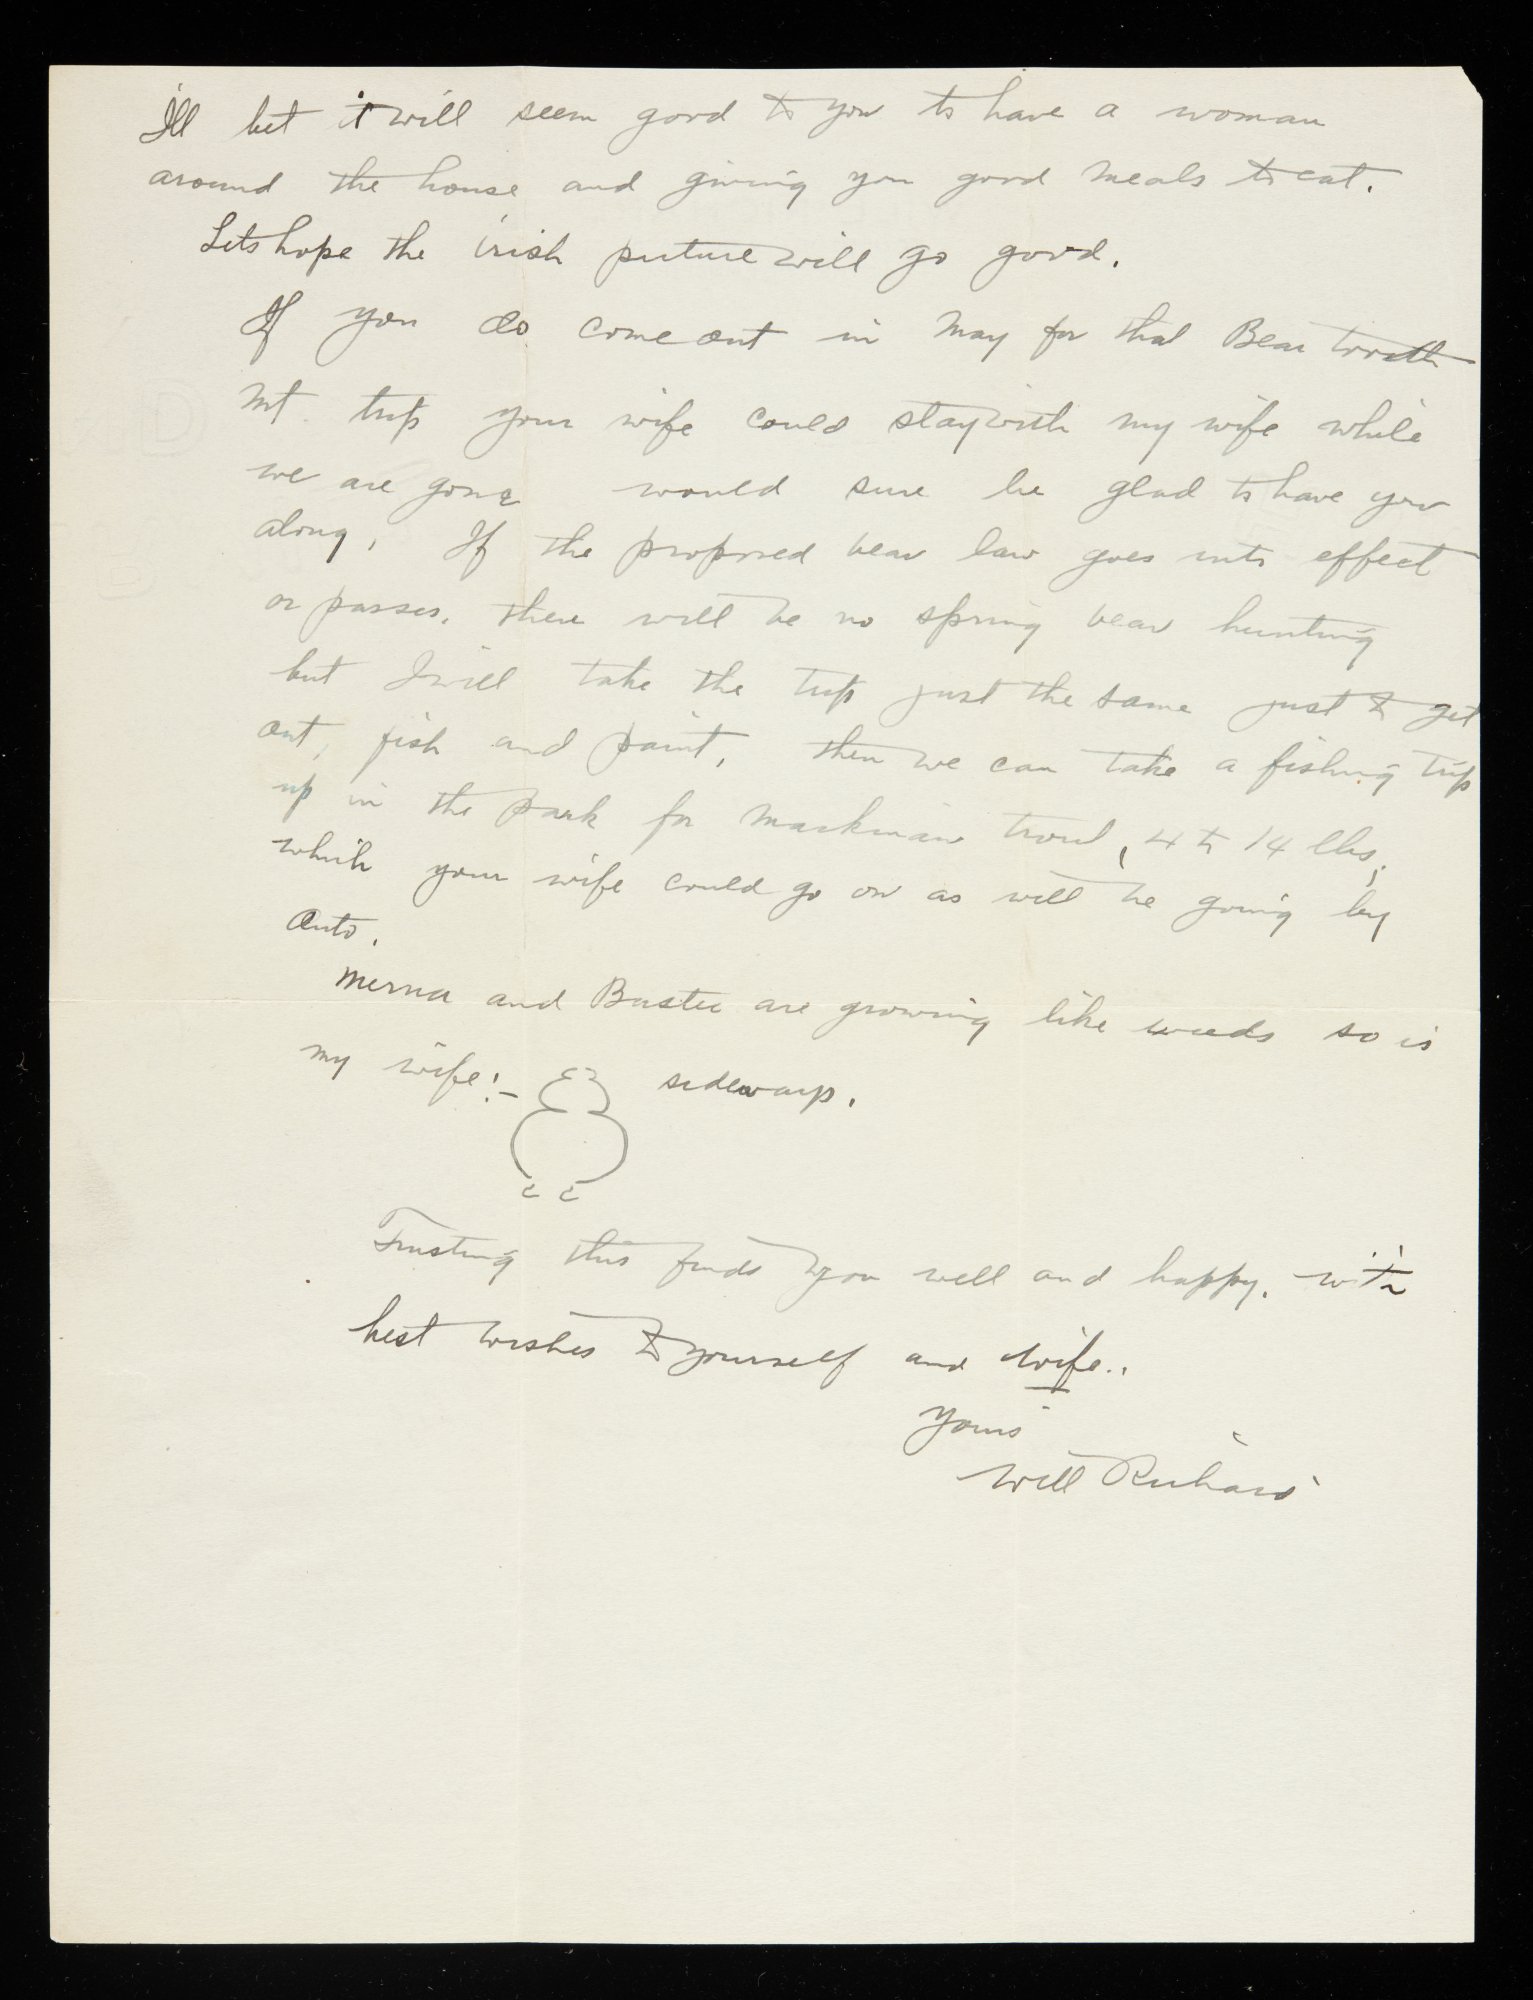 I'll bet it will seem good to you to have a woman
around the house and giving you good meals to eat.
Lets hope the irish picture will go good.
If you do come out in May for that Bear tooth
Mt. trip your wife could stay with my wife while
we are gone would sure be glad to have you
along. If the proposed bear law goes into effect
or passes, there will be no spring bear hunting
but I will take the trip just the same just to get
out, fish and paint, then we can take a fishing trip
up in the park for Mackinaw trout, 4 to 14 lbs;
which your wife could go on as will be going by
auto.
Merna and Buster are growing like weeds so is
my wife!- sideways.
Trusting this finds you well and happy, with
best wishes to yourself and wife..
Yours
Will Richard